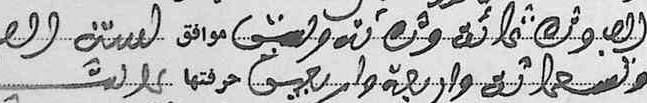 الف وثلاثمائة وثلاثة وستين موافق لسنة الف
وتسعمائة واربعة واربعين حرفتها